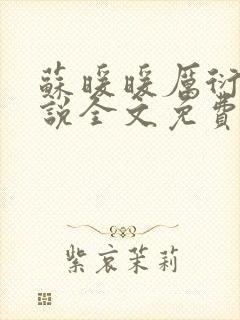 蘇暖暖厲衍
說全文免費
紫哀茉莉